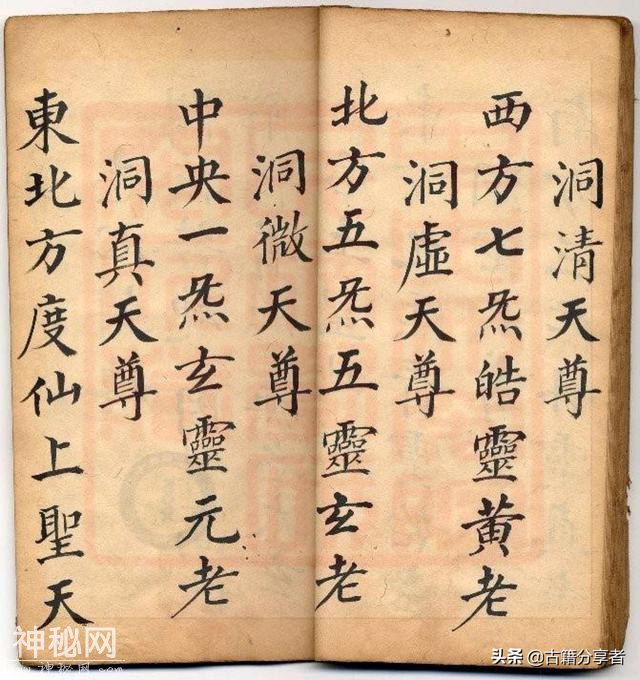 洞清天尊
西方七炁皓靈黄老
洞虛天尊
北方五炁五靈玄老
洞微天尊
中央一炁玄靈元老
洞真天尊
東北方度仙上聖天
神秘网
头条 @古籍分享者